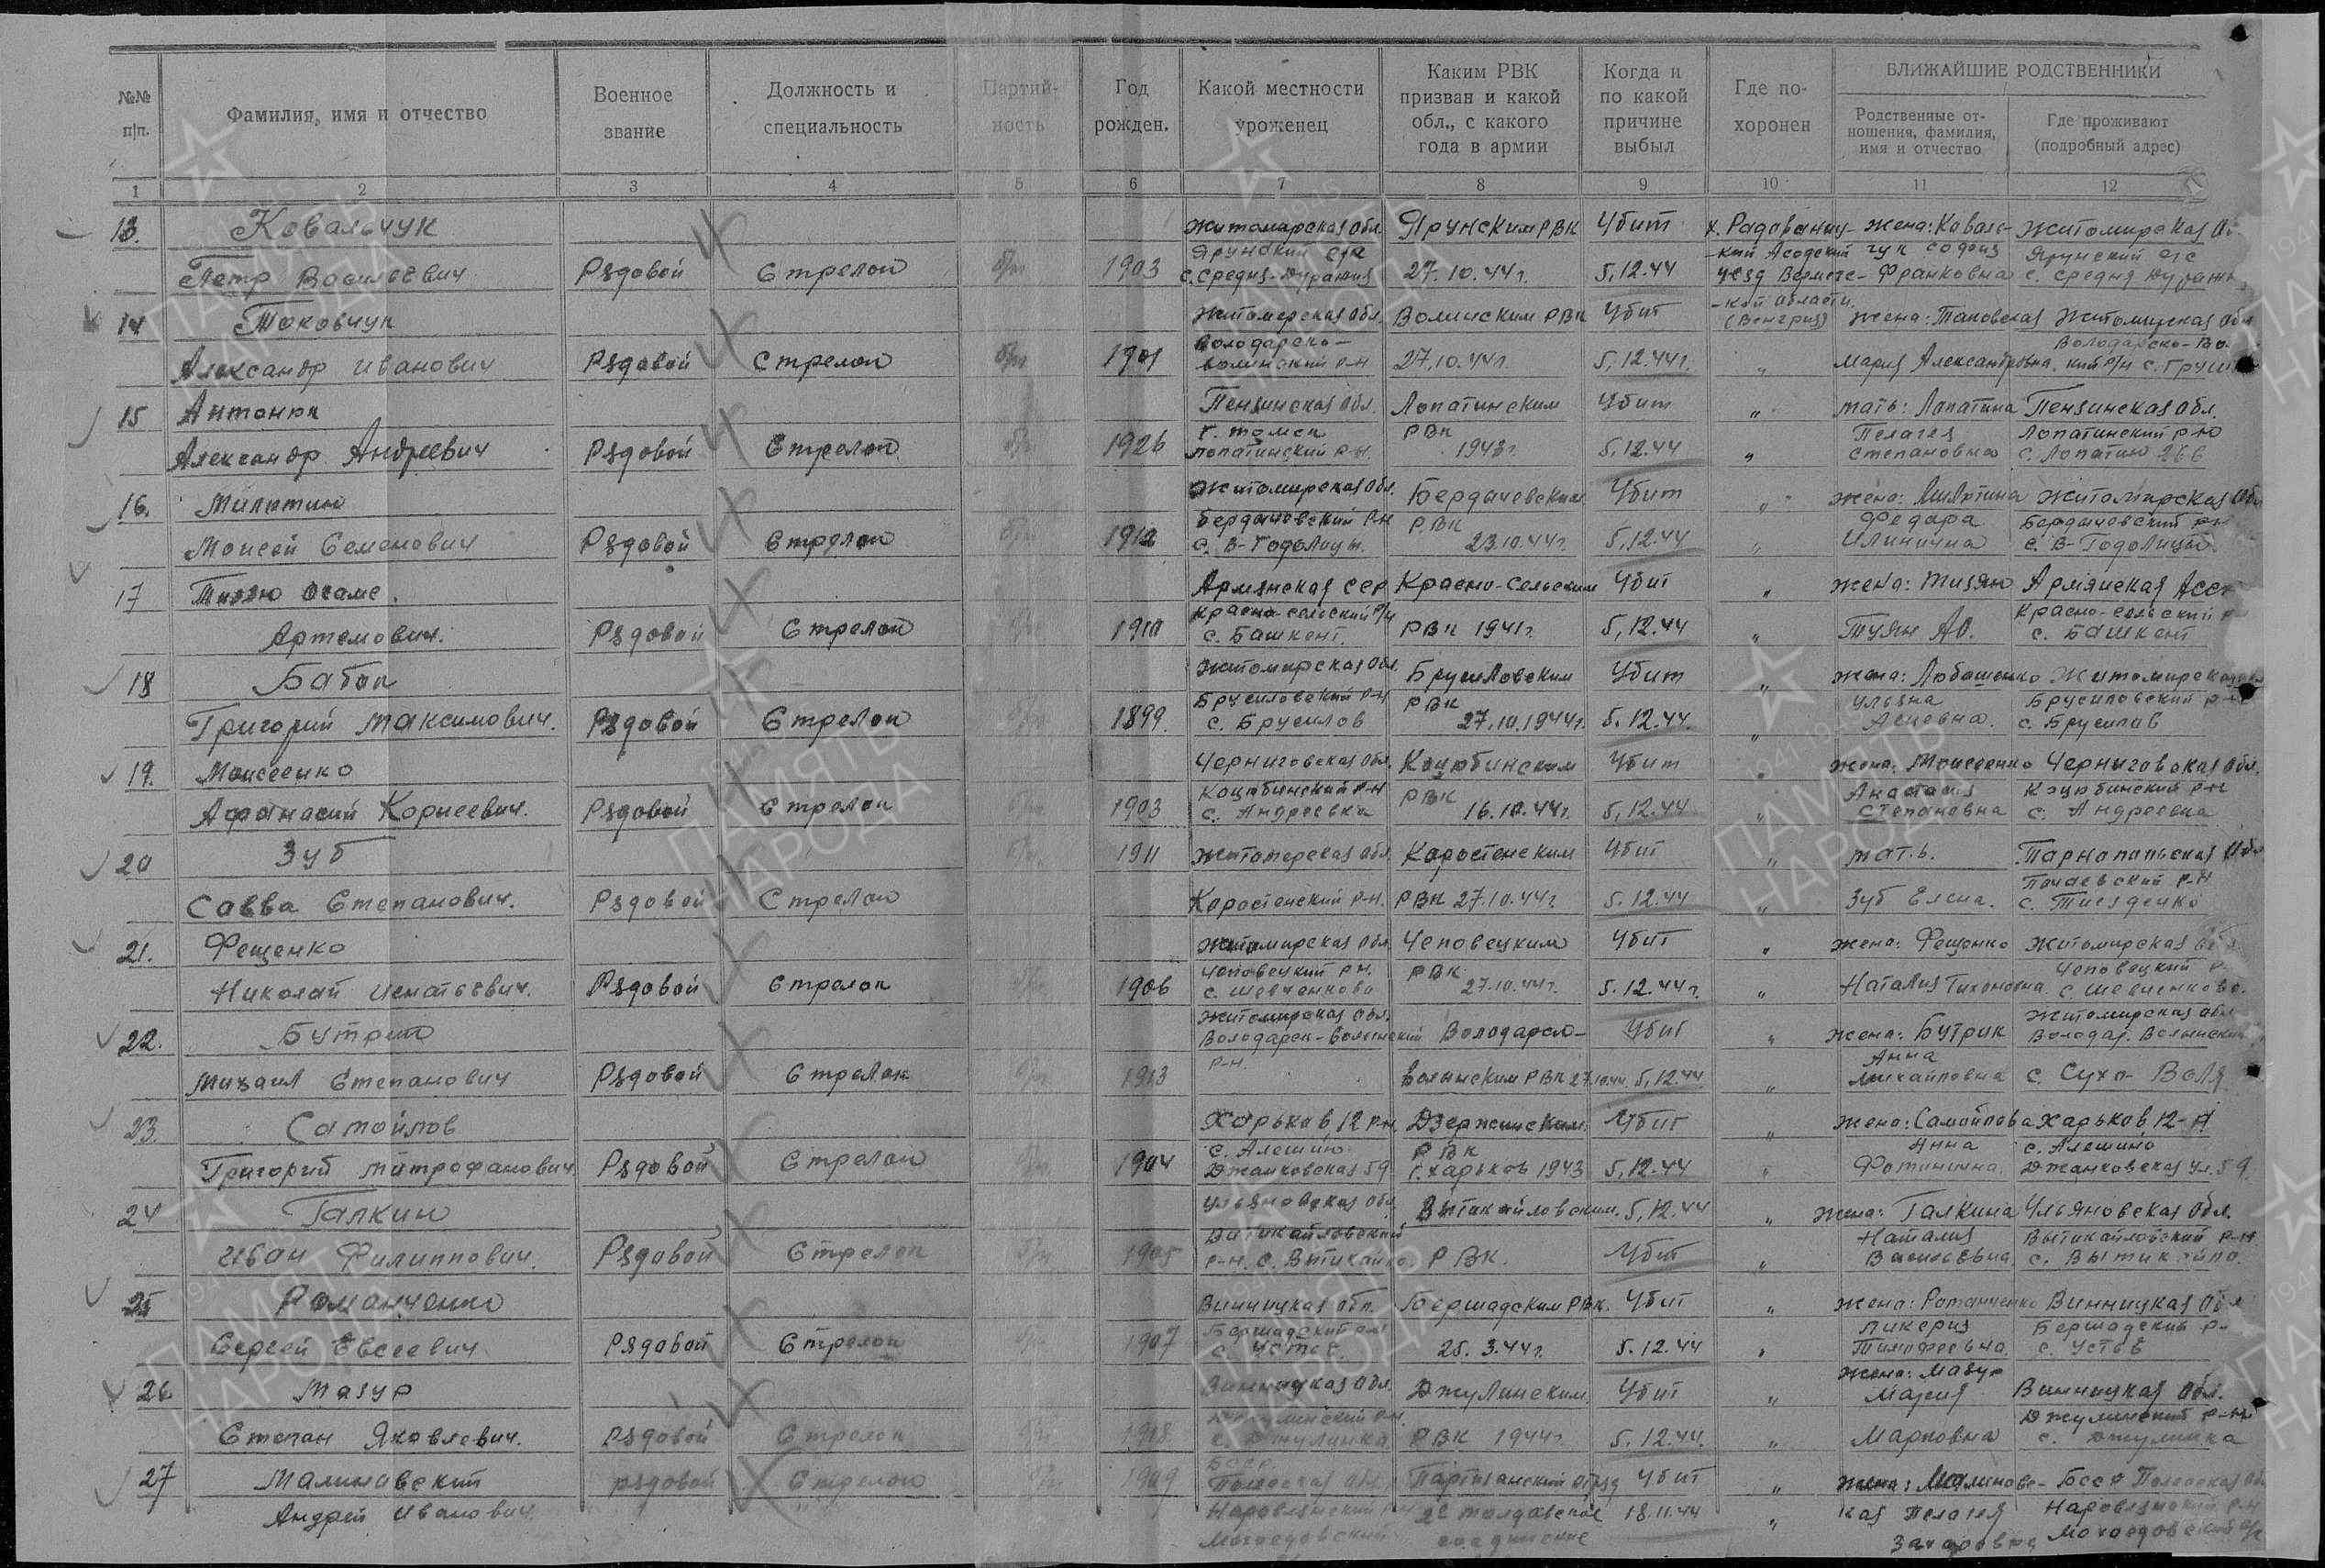 №№ п/п. Фамилия, имя и отчество Военное звание Должность и специальность Партий-ность Год рожден. Какой местности уроженец Каким РВК призван и какой обл., с какого года в армии Когда и по какой причине выбыл Где по-хоронен БЛИЖАЙШИЕ РОДСТВЕННИКИ
Родственные от-ношения, фамилия, имя и отчество Где проживают (подробный адрес)
1 2 3 4 5 6 7 8 9 10 11 12
13. Ковальчук Житомирская обл. Ярунским РВК Убит х. Жена: Коваль- Житомирская
Ярунский чук София Ярунский
Петр Васильевич Рядовой Стрелок б/п 1903 с. Средня- 27.10.44г. 5.12.44 уезд Франковна с. Средня
-кой области
14 Житомерская обл Волинским РВК Убит (Венгрия) жена: Житомирская обл
Володарско- Володарско-Во.
Александр Иванович Рядовой Стрелок б/п 1901 волинский р-н 27.10.44г. 5.12.44г. " Мария Александровна кий р/н с.
15 Антонюк Пензинская обл. Лопатинским Убит " мать: Лопатина Пензинская обл.
РВК Пелагея Лопатинский р-н
Александр Андреевич Рядовой Стрелок б/п 1926 лопатинский р-н 1943г. 5.12.44 " Степановна с. Лопатино 266
16. Милютин Житомирская обл. Бердичевским Убит " жена: Житомирская обл
Бердичевский р-н РВК Федора Бердичевский р-н
Моисей Семенович Рядовой Стрелок б/п 1912 23.10.44г. 5.12.44 " Илинична
17 Армянская сср Красно-Сельским Убит " жена: Армянская
Красно-сельский р/н Красно-сельский
Артемович. Рядовой Стрелок б/п 1910 с. Башкент РВК 1941г. 5.12.44 " с. Башкент
18 Бабак Житомирская обл. Брусиловским Убит " жена: Любашенко Житомирская
Брусиловский р-н РВК Ульяна Брусиловский р-н
Григорий Максимович. Рядовой Стрелок б/п 1899 с. Брусилов 27.10.1944г. 5.12.44. " с. Брусилов
19. Моисеенко Черниговская обл. Коцюбинским Убит " жена: Моисеенко Черниговская обл.
Коцюбинский р-н РВК Анастасия Коцюбинский р-н
Афанасий Корнеевич. Рядовой Стрелок б/п 1903 с. Андреевка 16.10.44г. 5.12.44 " Степановна с. Андреевка
20 Зуб б/п 1911 Житомерская обл Коростенским Убит " мать. Тарнопольская обл
Почаевский р-н
Савва Степанович. Рядовой Стрелок Коростенский р-н. РВК 27.10.44г. 5.12.44 " Зуб Елена.
21. Фещенко Житомирская обл Чеповецким Убит " жена: Фещенко Житомирская
Чеповецкий р-н. РВК Чеповецкий р-
Николай Игнатьевич. Рядовой Стрелок б/п 1906 с. Шевченково 27.10.44г. 5.12.44г. " Наталия Тихоновна с. Шевченково.
22. Бутрик Житомирская обл. Житомирская обл
Володарск-Волынский Володарско- Убит " жена: Бутрик Володар. Волынский
р-н. Анна
Михаил Степанович Рядовой Стрелок б/п 1913 Волынским РВК 27.10.44. 5.12.44 " Михайловна с. Сухо-Воля
23. Самойлов Харьков 12 р-н. Дзержинским Убит " жена: Самойлова Харьков 12-
с. Алешино РВК Анна с. Алешино
Григорий Митрофанович Рядовой Стрелок б/п 1904 Джанковская 59 г. Харьков 1943 5.12.44 " Джанковская ул. 59
24 Галкин Ульяновская обл Вытикайловским. 5.12.44 " жена: Галкина Ульяновская обл.
Наталия Вытикайловский р-н
Иван Филиппович. Рядовой Стрелок б/п 1905 р-н. с. РВК. Убит " Васильевна
25 Романченко Винницкая обл. Бершадским РВК. Убит " жена: Романченко Винницкая обл
Бершадский р-н Ликерия Бершадский р-
Сергей Евсеевич Рядовой Стрелок б/п 1907 с. Устье 25.3.44г. 5.12.44 " Тимофеевна. с. Устье
26 Мазур Винницкая обл. Джулинским Убит " жена: Мазур Мария Винницкая обл.
Джулинский р-н. Джулинский р-н
Степан Яковлевич. Рядовой Стрелок б/п 1908 с. Джулинка РВК 1944г. 5.12.44. " Марковна с. Джулинка
27 Малиновский рядовой Стрелок б/п 1909 БССР Полесская обл Партизанский отряд Убит " жена: Малиновс- БССР Полесская обл
Андрей Иванович. Наровлянский 2е молдавское 18.11.44 " кая Пелагея Наровлянский р-н
соединение Захаровна
ПАМЯТЬ НАРОДА
1941-1945